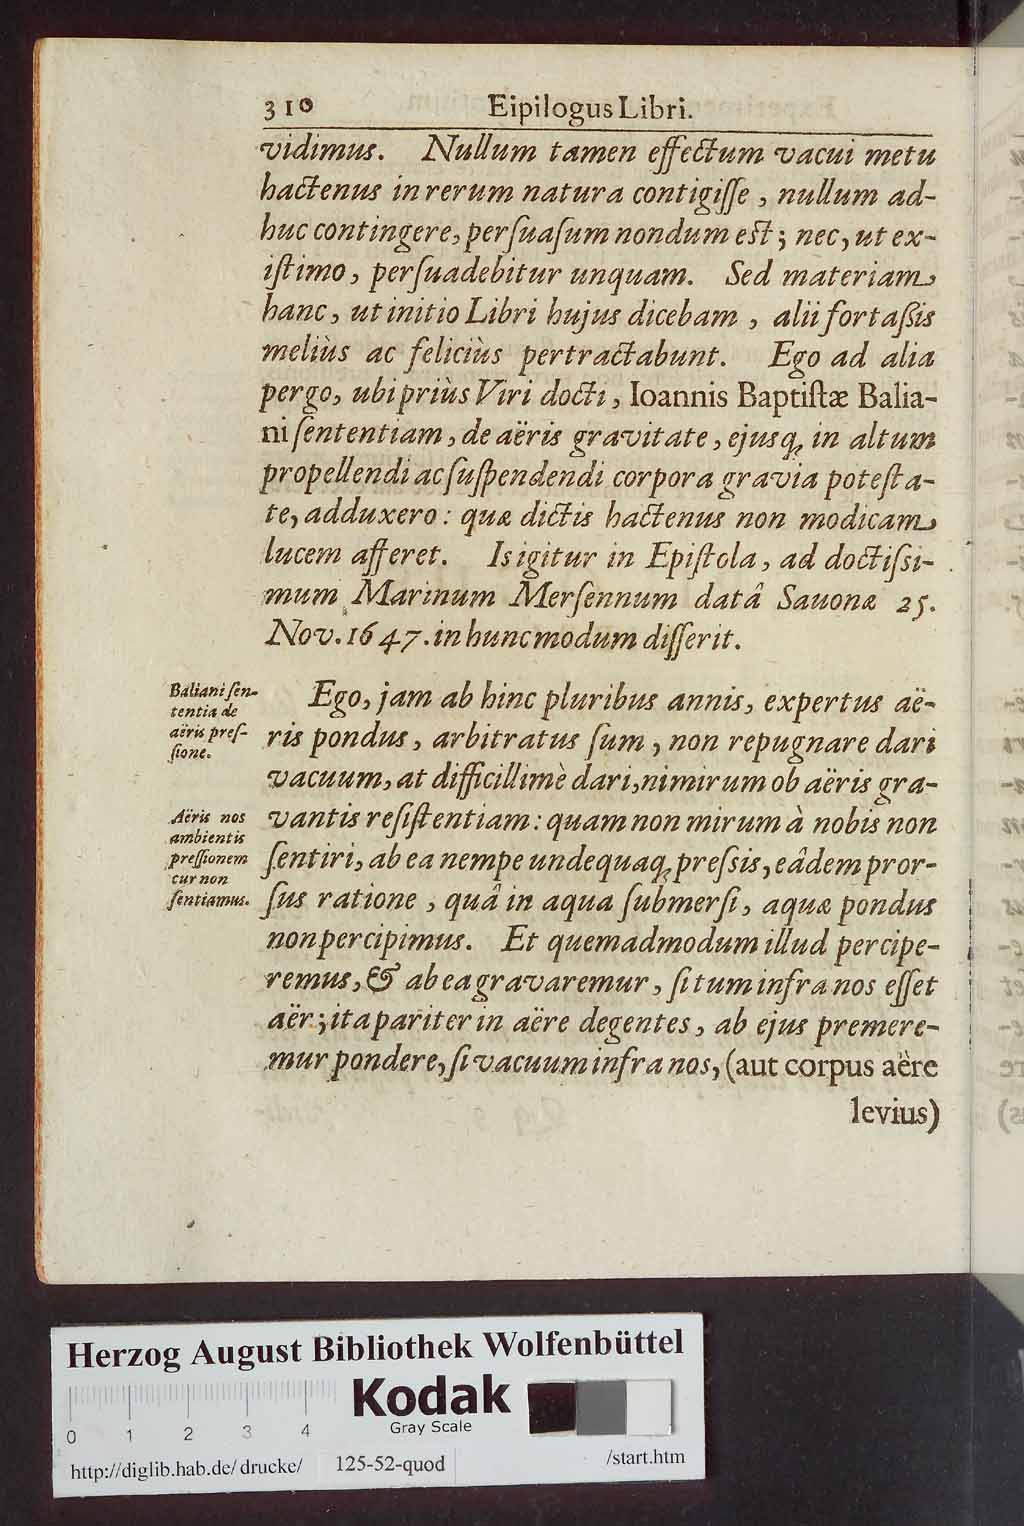 310 Eipilogus Libri.
vidimus. Nullum tamen effectum vacui metu
hactenus in rerum natura contigiſſe, nullum ad-
huc contingere, perſuaſum nondum eſt; nec, ut ex-
iſtimo, perſuadebitur unquam. Sed materiam
hanc, ut initio Libri hujus dicebam, alii fortaſsis
meliùs ac feliciùs pertractabunt. Ego ad alia
pergo, ubi priùs Viri docti, Ioannis Baptiſtæ Balia-
ni ſententiam, de aëris gravitate, ejusq; in altum
propellendi ac ſuſpendendi corpora gravia poteſta-
te, adduxero: quæ dictis hactenus non modicam
lucem afferet. Is igitur in Epiſtola, ad doctiſsi-
mum Marinum Merſennum datâ Sauonæ 25.
Nov. 1647. in hunc modum diſſerit.
Baliani ſen-
tentia de
aëris preſ-
ſione.
Ego, jam ab hinc pluribus annis, expertus aë-
ris pondus, arbitratus ſum, non repugnare dari
vacuum, at difficillimè dari, nimirum ob aëris gra-
Aëris nos
ambientis
preſſionem
cur non
ſentiamus.
vantis reſiſtentiam: quam non mirum à nobis non
ſentiri, ab ea nempe undequaq; preſsis, eâdem pror-
ſus ratione, quâ in aqua ſubmerſi, aquæ pondus
non percipimus. Et quemadmodum illud percipe-
remus, & ab ea gravaremur, ſi tum infra nos eſſet
aër; ita pariter in aëre degentes, ab ejus premere-
mur pondere, ſi vacuum infra nos, (aut corpus aëre
levius)
Herzog August Bibliothek Wolfenbüttel
Kodak
Gray Scale
0 1 2 3 4
http://diglib.hab.de/drucke/ 125-52-quod /start.htm